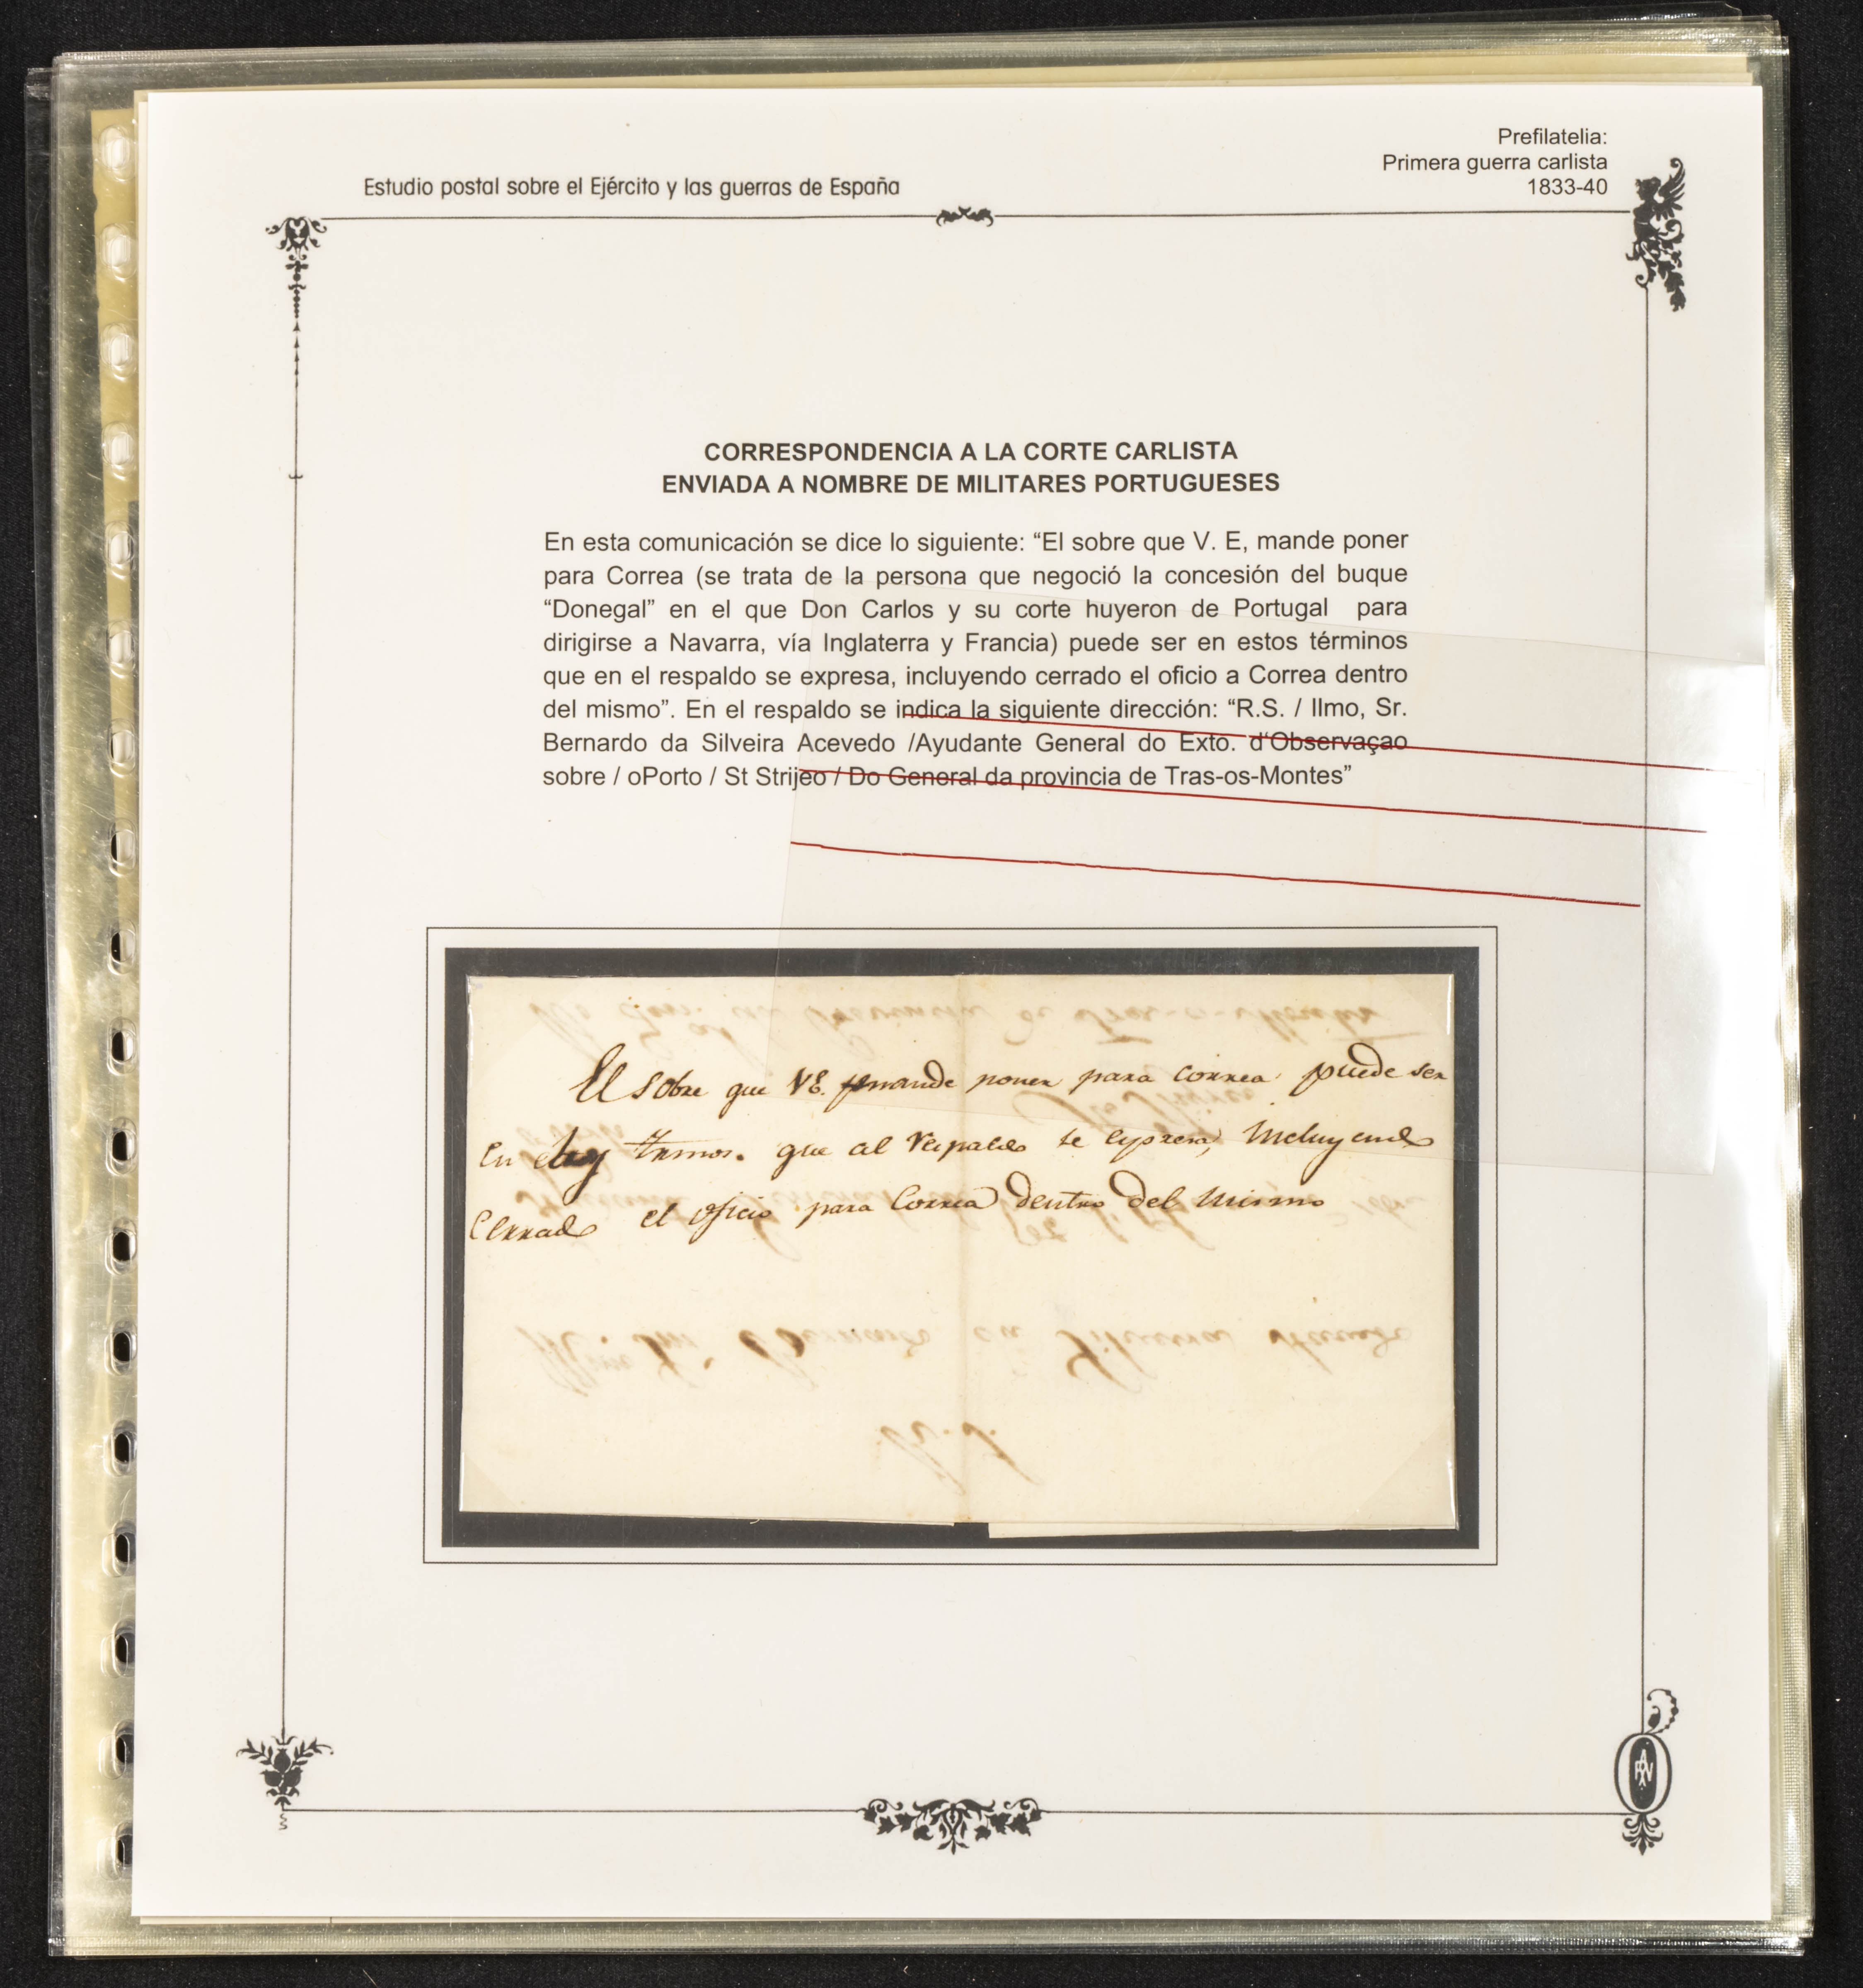 Prefilatelia:
Primera guerra carlista
1833-40
Estudio postal sobre el Ejército y las guerras de España
CORRESPONDENCIA A LA CORTE CARLISTA
ENVIADA A NOMBRE DE MILITARES PORTUGUESES
En esta comunicación se dice lo siguiente: “El sobre que V. E, mande poner
para Correa (se trata de la persona que negoció la concesión del buque
“Donegal” en el que Don Carlos y su corte huyeron de Portugal para
dirigirse a Navarra, vía Inglaterra y Francia) puede ser en estos términos
que en el respaldo se expresa, incluyendo cerrado el oficio a Correa dentro
del mismo”. En el respaldo se indica la siguiente dirección: “R.S. / Ilmo, Sr.
Bernardo da Silveira Acevedo /Ayudante General do Exto. d‘Observaçao
sobre / oPorto / St Strijeo / Do General da provincia de Tras-os-Montes”
El sobre que VE. mande poner para correa puede ser
En que al respaldo se expresa, Incluyendo
Cerrado el oficio para Correa dentro del mismo